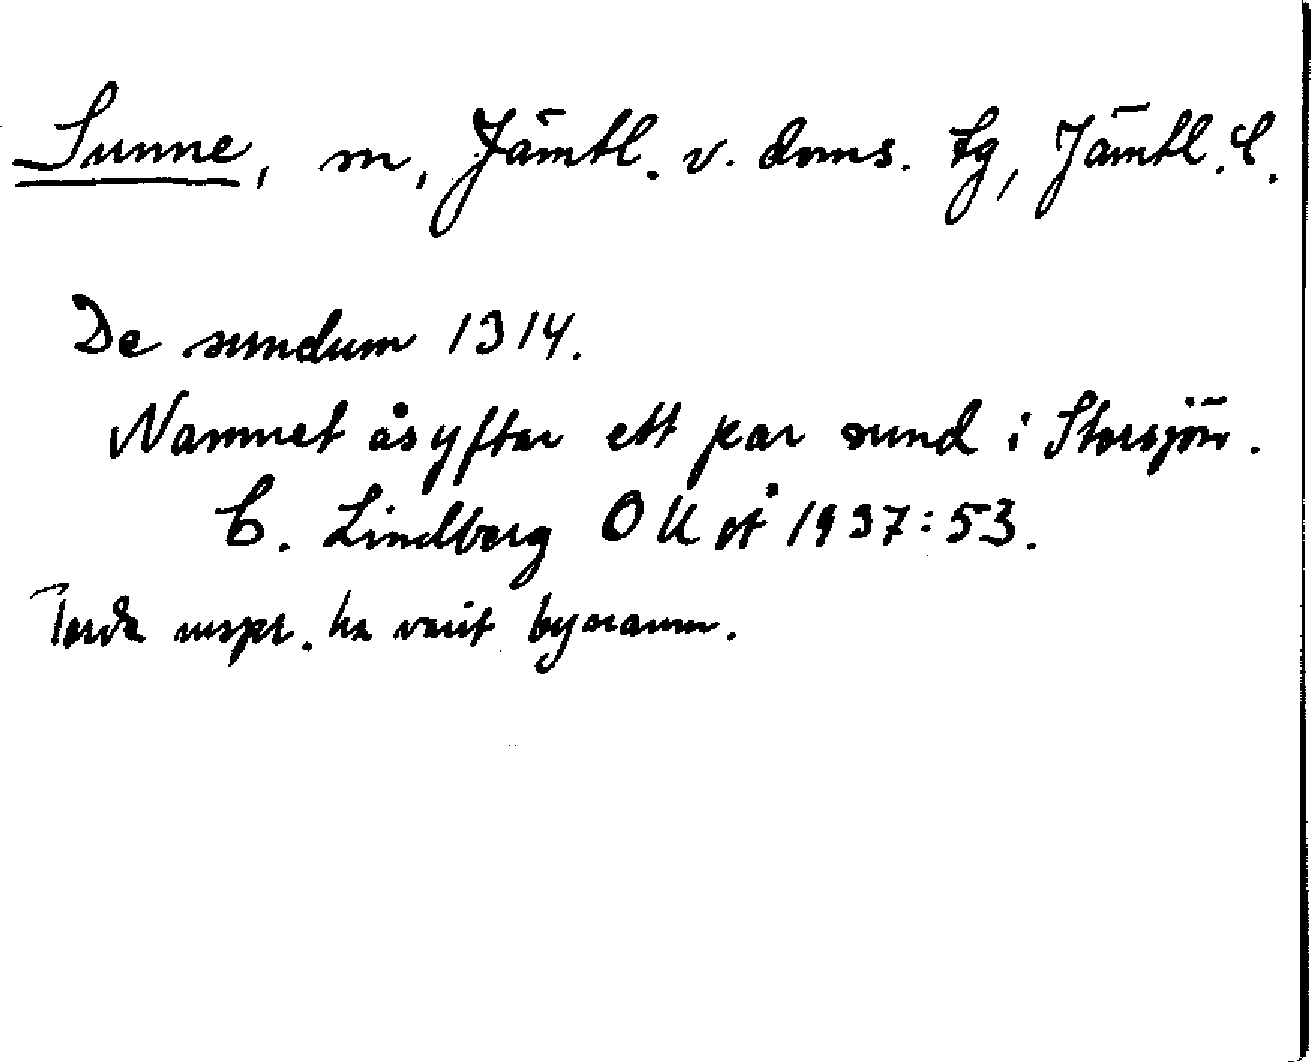 Sunne, m, Jämtl. v. doms. tg, Jämtl. l.
De sundum 1314.
Namnet åsyftar ett par sund i Storsjön.
C. Lindberg OUÅ 1937:53.
Torde urspr. ha varit bynamn.